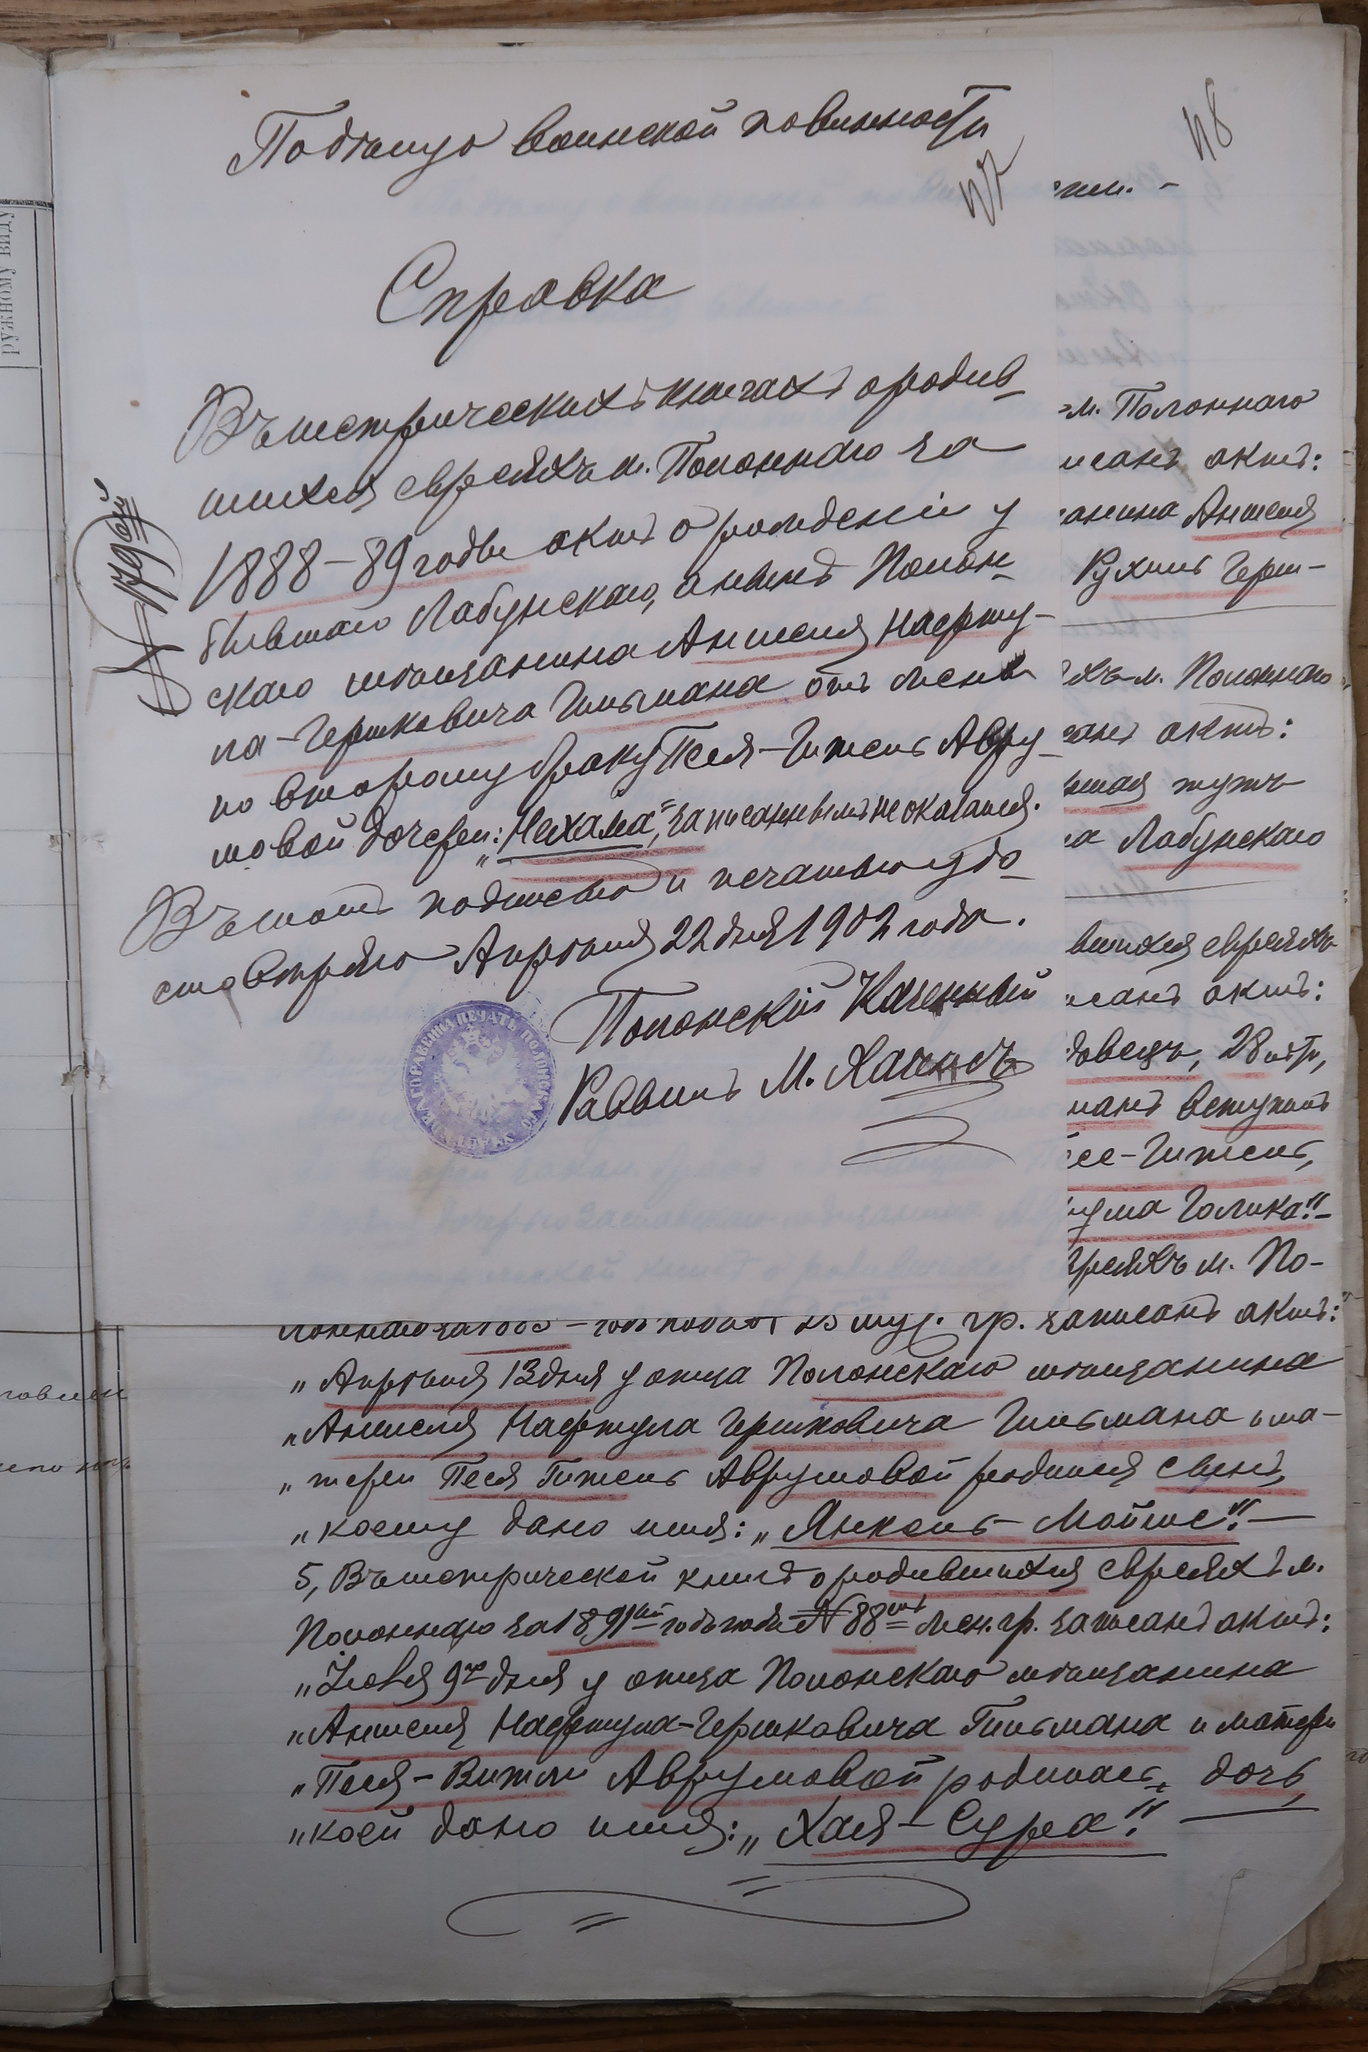 По дѣлу о воинской повинности
47
48
Справка
Въ метрическихъ книгахъ о родив-
шихся евреяхъ м. Полоннаго за
1888-89 годы актъ о рожденіи у
бывшаго Лабунскаго, а нынѣ Полон-
скаго мѣщанина Аншеля Нафту-
ла-Гершковича Гительмана отъ жены
по второму браку Песя-Гитель Авру-
мовой дочери: „Нехама", записаннымъ не оказался.
Въ томъ подписью и печатью удо-
стовѣряю Апрѣля 22 дня 1902 года.
Полонскій Казенный
Раввинъ М.
№ 179ой
РУЖНОМУ ВИДУ
м. Полоннаго
актъ:
Аншеля
Рухль Герш-
м. Полоннаго
актъ:
мужъ
Лабунскаго
вшихся евреяхъ
актъ:
28 лѣтъ,
вступилъ
Гитель,
Голика"-
м. По-
лоннаго за годъ подъ № 23 муж. гр. записанъ актъ:
„Апрѣля 13 дня у отца Полонскаго мѣщанина
„Аншеля Нафтула Гершковича Гительмана и ма-
„тери Песя Гитель Аврумовой родился сынъ,
„коему дано имя: „Янкель-Мойше".-
5, Въ метрической книгѣ о родившихся евреяхъ м.
Полоннаго за 1891й годъ подъ № 88мъ жен. гр. записанъ актъ:
„Іюля 9го дня у отца Полонскаго мѣщанина
„Аншеля Нафтула-Гершковича Гительмана и матери
„Песя-Витли Аврумовой родилась дочь,
„коей дано имя: „Хая-Сура".